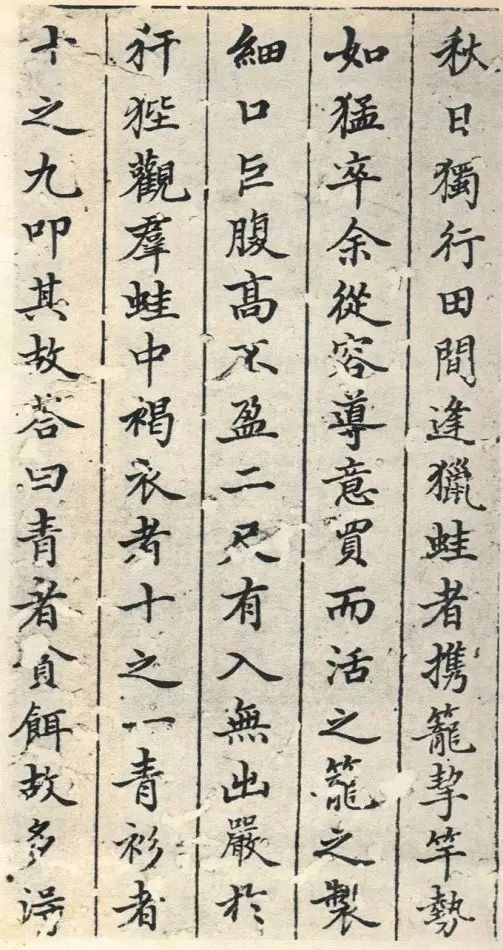 秋日獨行田間逢獵蛙者携籠挈竿勢
如猛卒余從容導意買而活之籠之製
細口巨腹高不盈二尺有入無出嚴於
犴狴觀羣蛙中褐衣者十之一青衫者
十之九叩其故荅曰青者貪餌故多得